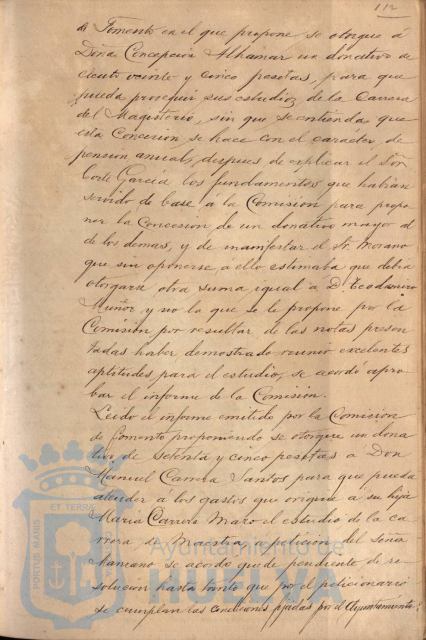 112
de Fomento en el que propone se otorgue á
Doña Concepción Alhamar un donativo de
ciento veinte y cinco pesetas, para que
pueda proseguir sus estudios de la Carrera
del Magisterio, sin que se entienda que
esta Concesion, se hace con el carácter, de
pension anual, despues de esplicar el Señor
Corte García los fundamentos que habian
servido de base á la Comision para propo
ner la concesion de un donativo mayor al
de los demas, y de manifestar el Sr. Morano
que sin oponerse á ello estimaba que debia
otorgara otra suma igual a Dn Teodomiro
Muñoz y no la que se le propone por la
Comision por resultar de las notas presen
tadas haber demostrado reunir excelentes
aptitudes para el estudio, se acordó apro
bar el informe de la Comision.
Leido el informe emitido por la Comision
de fomento proponiendo se otorgue un dona
tivo de setenta y cinco pesetas a Don
Manuel Santos para que pueda
atender á los gastos que origine a su hija
María Maro el estudio de la ca
rrera de Maestra a peticion del señor
se acordo quede pendiente de re
solucion hasta tanto que por el peticionario
se cumplan las condiciones fijadas por el Ayuntamiento.
ET TERRÆ
PORTUS MARIS
Ayuntamiento de
HUELVA